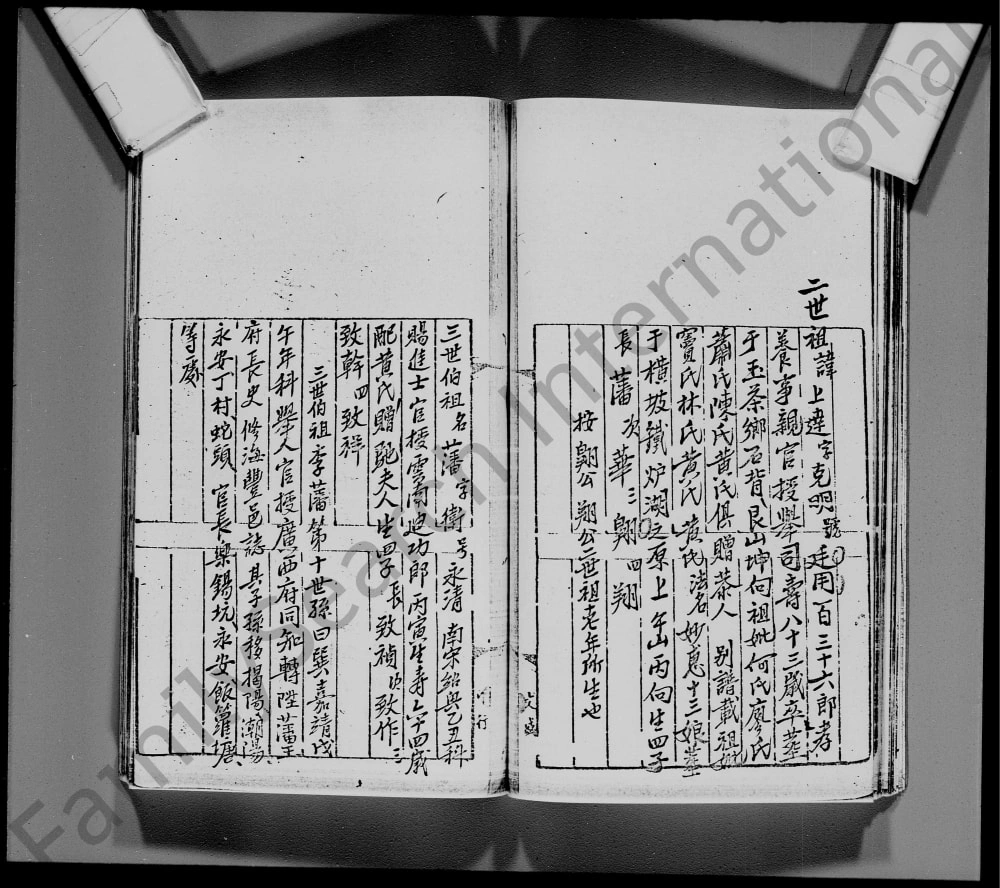 二世祖諱上達字克明號廷用百三十六郎孝
養事親官授舉司壽八十三歲卒葬
于玉茶鄉石背艮山坤向祖妣何氏廖氏
蕭氏陳氏黃氏俱贈恭人 別譜載祖妣
竇氏林氏黃氏 黃氏法名妙息十三娘葬
于橫坡鐵炉湖之原上午山丙向生四子
長藩 次華 三翺 四翔
按翺公翔公二世祖老年所生也
三世伯祖名藩字衛号永清 南宋紹興乙丑科
賜進士官授雲南廸功郎丙寅生壽八十四歲
配黃氏贈夫人生四子長致禎次致作三
致幹四致祥
三世伯祖季藩第十世孫曰巽嘉靖戊
午年科舉人官授廣西府同知轉陞藩王
府長史修海豐邑誌其子孫移揭陽潮陽
永安丁村蛇頭 官長樂錫坑永安飯籮塘
等處
FamilySearch International